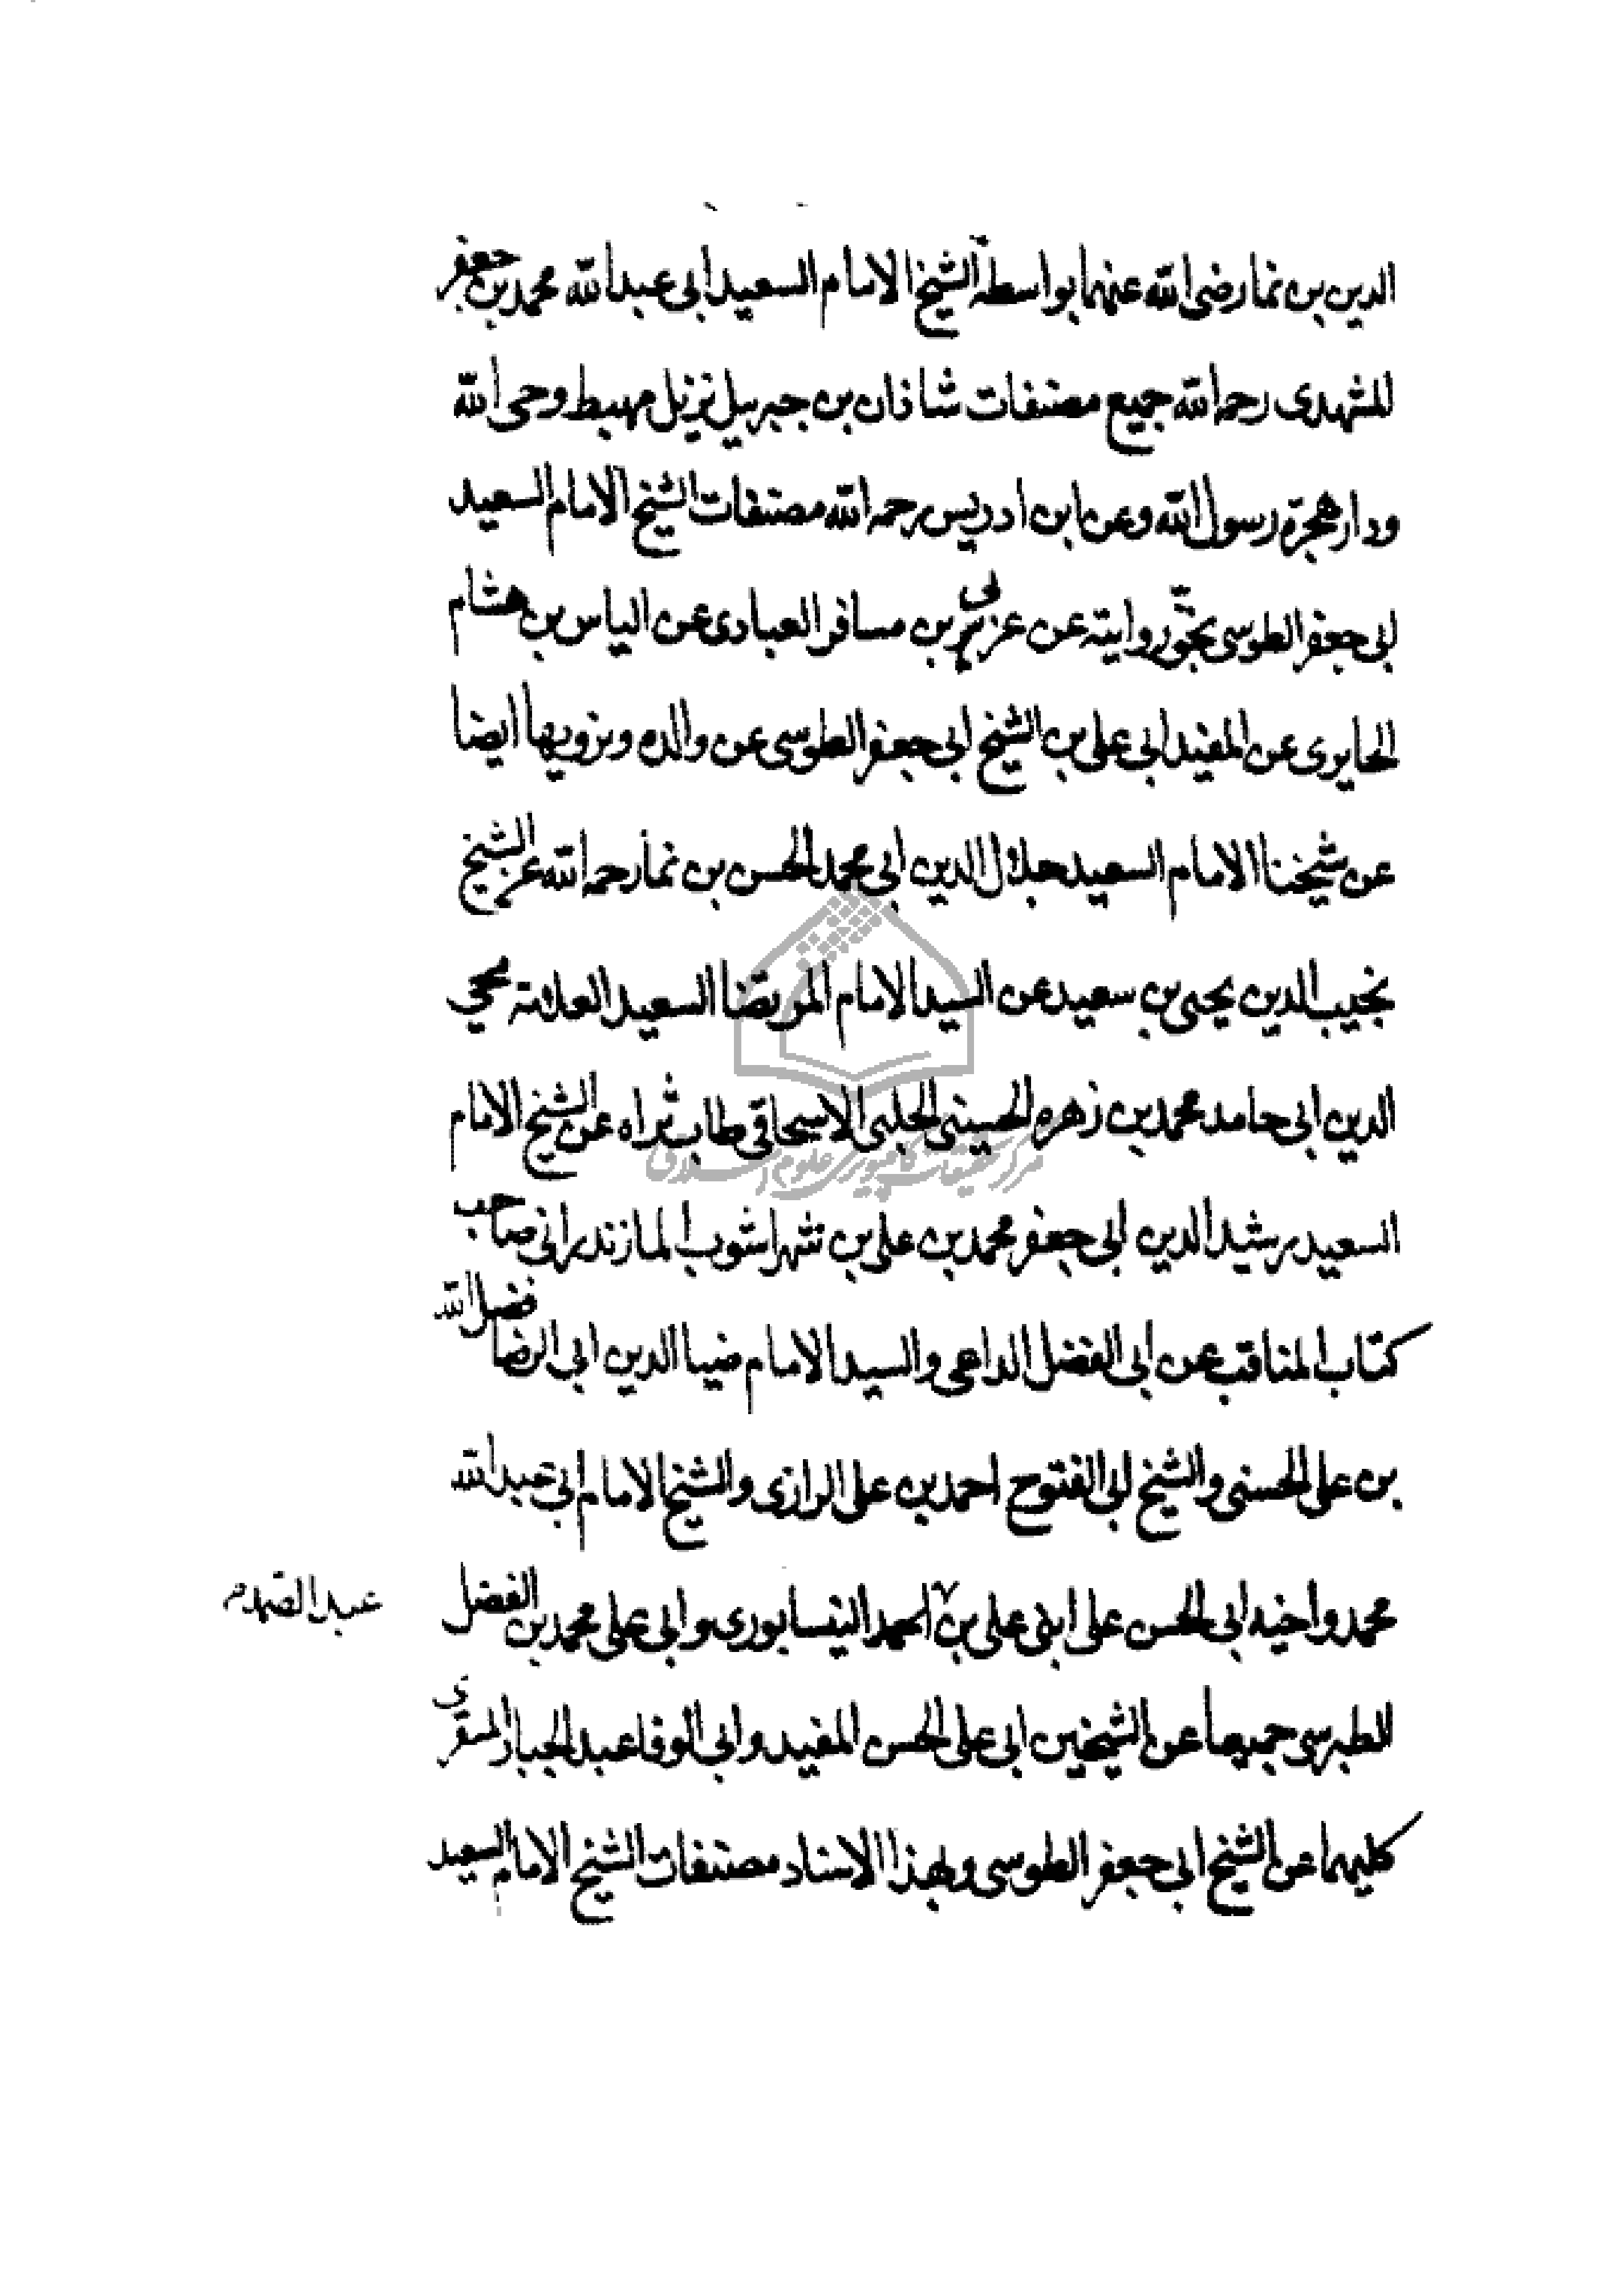 الدين بن نما رضى الله عنهما بواسطة الشيخ الامام السعيد ابى عبد الله محمد بن جعفر
المشهدى رحمه الله جميع مصنفات شاذان بن جبرييل نزيل مهبط وحى الله
ودار هجرة رسول الله وعن ابن ادريس رحمه الله مصنفات الشيخ الامام السعيد
ابى جعفر الطوسى بحق روايته عن عربى بن مسافر العبادى عن الياس بن هشام
الحايرى عن المفيد ابى على بن الشيخ ابى جعفر الطوسى عن والده ونرويها ايضا
عن شيخنا الامام السعيد جلال الدين ابى محمد الحسن بن نما رحمه الله عن الشيخ
نجيب الدين يحيى بن سعيد عن السيد الامام المرتضا السعيد العلامة محيى
الدين ابى حامد محمد بن زهره الحسينى الحلبى الاسحاقى طاب ثراه عن الشيخ الامام
السعيد رشيد الدين ابى جعفر محمد بن على بن شهراشوب المازندرانى صاحب
كتاب المناقب عن ابى الفضل الداعى والسيد الامام ضيا الدين ابى الرضا فضل الله
بن على الحسنى والشيخ ابى الفتوح احمد بن على الرازى والشيخ الامام ابى عبد الله
محمد واخيه ابى الحسن على ابنى على بن النيسابورى وابى على محمد بن الفضل
عبد الصمد
الطبرسى جميعا عن الشيخين ابى على الحسن المفيد وابى الوفا عبد الجبار المقرى
كليهما عن الشيخ ابى جعفر الطوسى وبهذا الاسناد مصنفات الشيخ الامام السعيد
مركز تحقيقات كامپيوترى علوم اسلامى